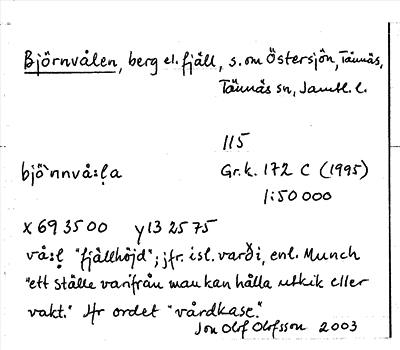 Björnvålen, berg el. fjäll, s.om Östersjön, Tännäs,
Tännäs sn, Jämtl. l.
115
bjö`nnvå:ḷa Gr.k. 172 C (1995)
1:50 000
x 69 35 00 y 13 25 75
vå:ḷ "fjällhöjd"; jfr. isl. varði, enl. Munch
"ett ställe varifrån man kan hålla utkik eller
vakt." Jfr ordet "vårdkase."
Jon Olof Olofsson 2003